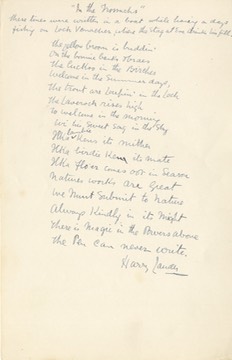 "In the Trossachs"
these lines were written in a boat while having a days
fishing on Loch Vennachar where the Stag at Eve drunk his fill
The yellow broom is buddin'
On the bonnie banks o braes
The Cuckoo in the Birches
Welcome in the Summer days,
The trout are loupin' in the Loch
The Laverock rises high
To welcome in the morning
Wi' his Sweet Song in the Sky
Ilka lambie Kens its mither
Ilka birdie Kens its mate
Ilka floer comes oot in Season
Natures works are great
We must Submit to Nature
Always Kindly in its Might
There is Magic in the Powers above
The Pen can never write.
Harry Lauder